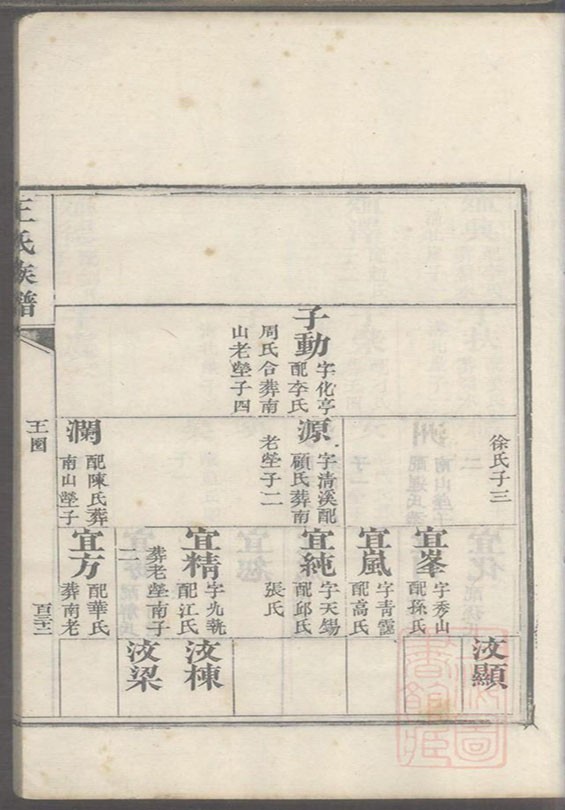 子動
字化亭
配李氏
周氏合葬南
山老塋子四
徐氏子三
源
字清溪配
顧氏葬南
老塋子二
瀾
配陳氏葬
南山塋子
宜峯
字秀山
配孫氏
宜嵐
字青靄
配高氏
宜純
字天錫
配邱氏
張氏
宜精
字九執
配江氏
葬老塋南子
二
宜方
配華氏
葬南老
汝顯
汝棟
汝梁
王氏族譜
王图
百三十二